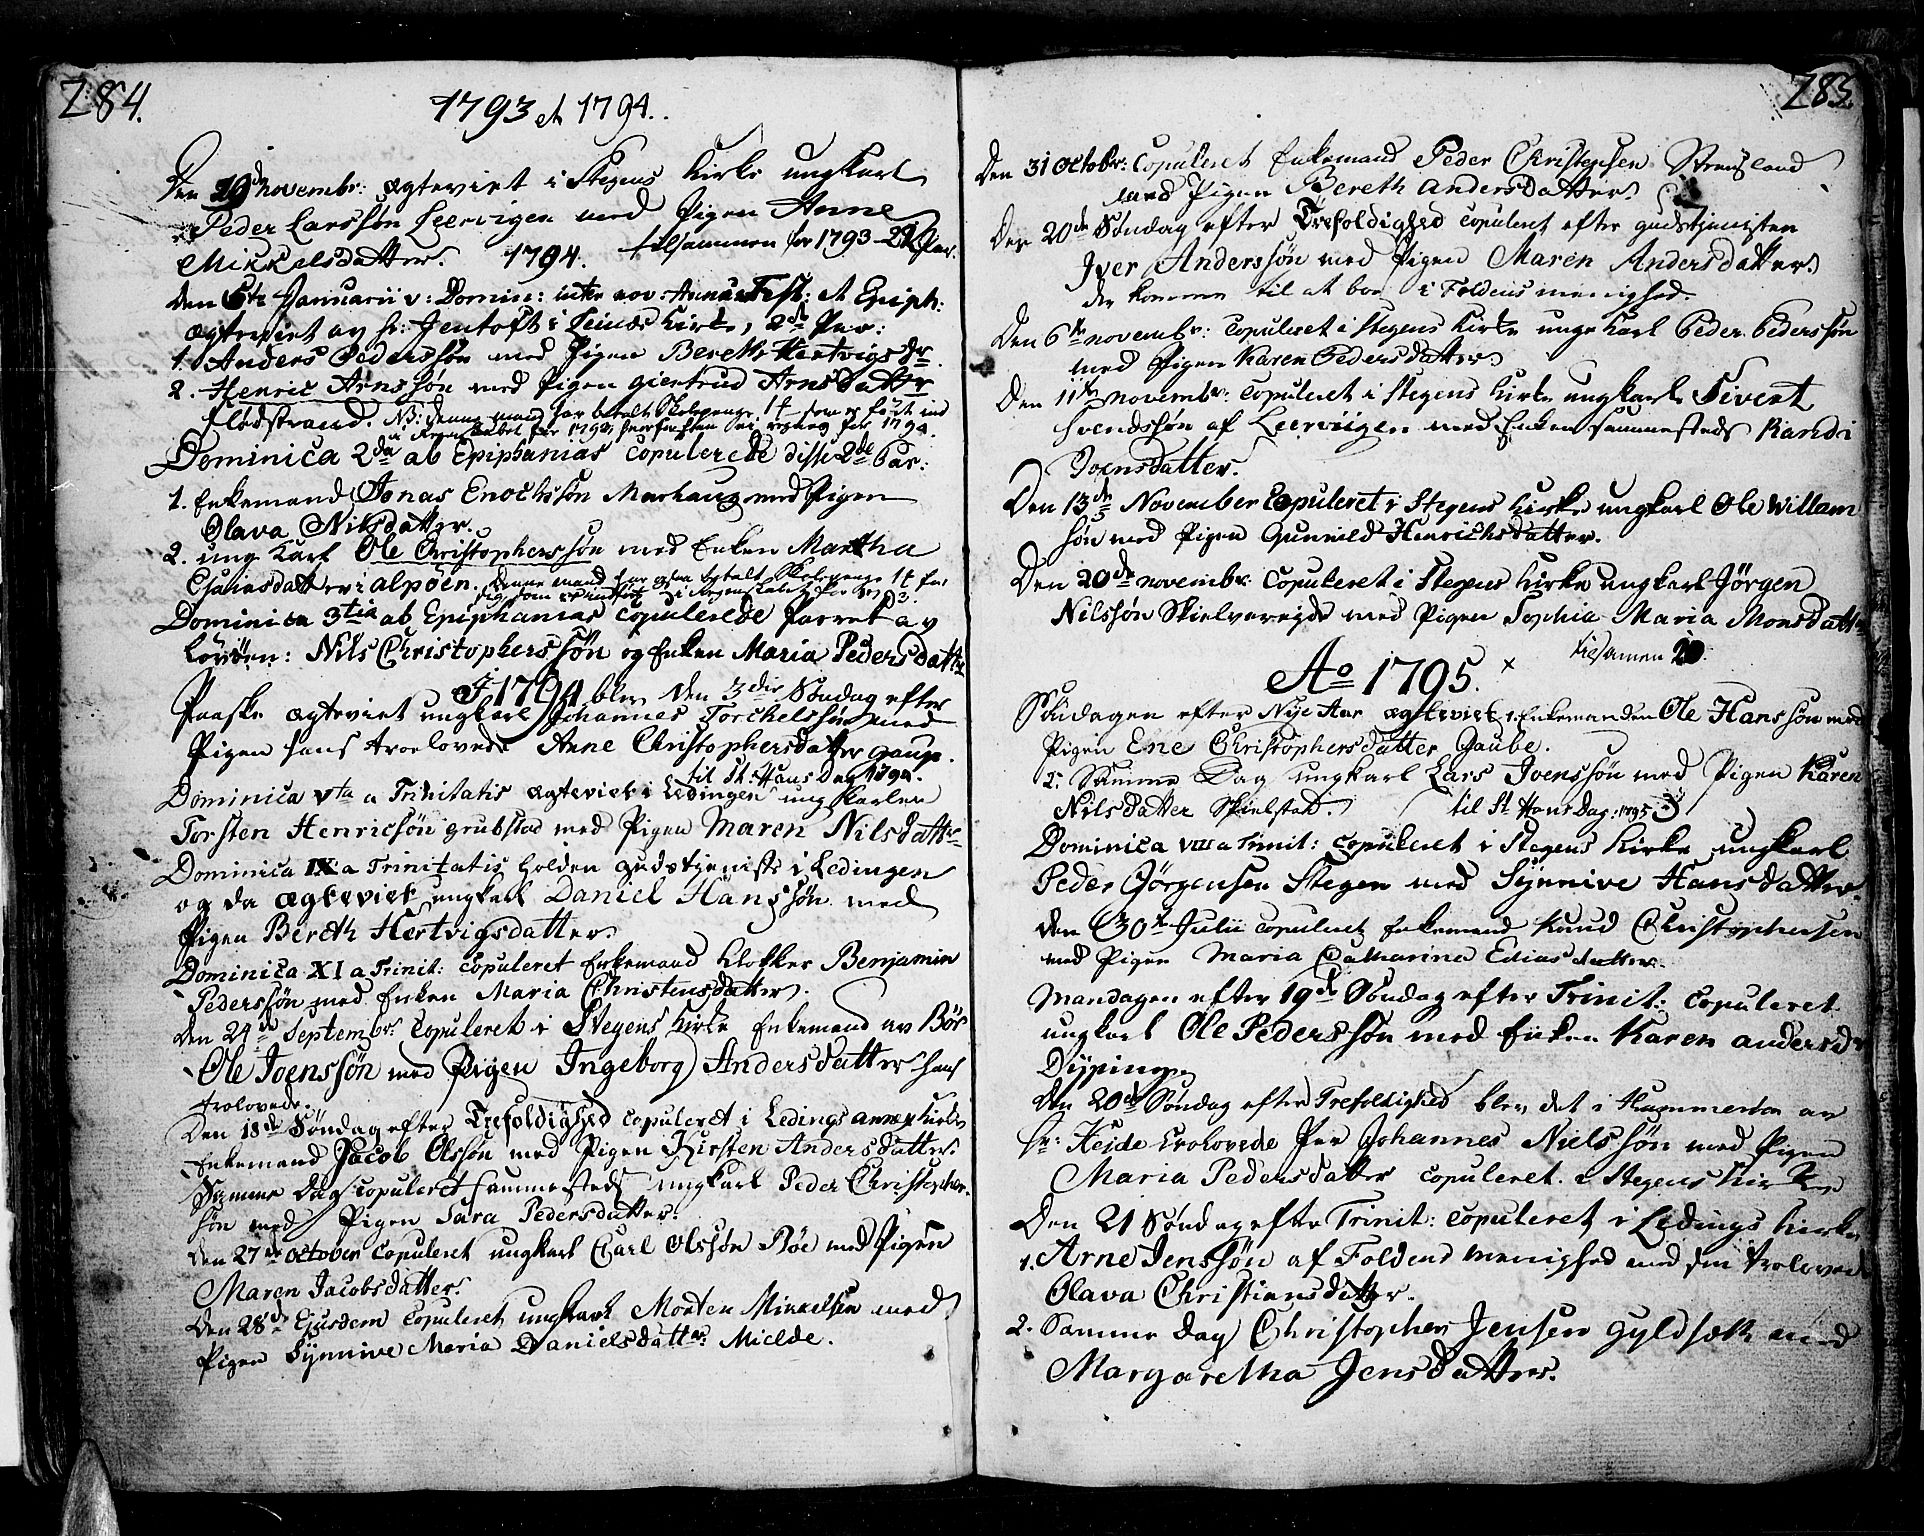 284.
1793 et 1794.
Den 29d novembr: ægteviet i Stegens Kirke ungkarl
Peder Larssøn Leervigen med Pigen Anne
Mikkelsdatter. 1794. tilsammen for 1793 - 22 Par.
Den 5te Januarii v: Domin: inter nov: Annum Fest: et Epiph:
ægteviet av Hr: Jentoft i Leines Kirke, 2de Par:
1. Anders Pederssøn med Pigen Bereth Hertvigsdr
2. Henric Arnssøn med Pigen giertrud Arnsdatter
Flodstrand. NB: denne mand har betalt Skolepenge 1 som er ført ind
i Regnskabet for 1793, herfor for 1794.
Dominica 2da ab Epiphanias copulerede disse 2de Par:
1. Enkemand Jonas Enochssøn Marhaug med Pigen
Olava Nilsdatter.
2. ung Karl Ole Christopherssøn med Enken Martha
Eliasdatter: alpøen. denne mand har ogsaa betalt Skolepenge 1 for
sig, som er indført i Regenskabet for 1793.
Dominica 3tia ab Epiphanias copulerede Parret av
Løvøen: Nils Christopherssøn og Enken Maria Pedersdatter
I 1794 blev den 3die Søndag efter
Paaske ægteviet ungkarl Johannes Torchelssøn med
Pigen hans troelovede Anne Christophersdatter gaup.
til St. Hans Dag 1794.
Dominica Vta a Trinitatis ægteviet i Ledingen ungkarlen
Torsten Henricsøn grubstad med Pigen Maren Nilsdatter
Dominica IX a Trinitatis holden gudstjeniste i Ledingen
og da ægteviet ungkarl Daniel Hanssøn med
Pigen Bereth Hertvigsdatter.
Dominica XI a Trinit: copuleret Enkemand Klokker Benjamin
Pederssøn med Enken Maria Christensdatter.
Den 24de Septembr: copuleret i Stegens Kirke Enkemand av Bøe
Ole Joenssøn med Pigen Ingeborg Andersdatter hans
trolovede.
Den 18de Søndag efter Trefoldighed copuleret i Ledings annex Kirke
Enkemand Jacob Olssøn med Pigen Kirsten Andersdatter.
Samme Dag copuleret sammesteds ungkarl Peder Christopher-
søn med Pigen Sara Pedersdatter.
Den 27de October copuleret ungkarl Carl Olssøn Bøe med Pigen
Maren Jacobsdatter.
Den 28de Ejusdem copuleret ungkarl Morten Mikkelsen med
Pigen Synnive Maria Danielsdatter Mielde.
285.
Den 31 Octobr: Copuleret Enkemand Peder Christensen Strensland
med Pigen Bereth Andersdatter.
Den 20de Søndag efter Trefoldighed copuleret efter gudstjenisten
Iver Anderssøn med Pigen Maren Andersdatter.
de komme til at boe i Foldens menighed.
Den 6te novembr: copuleret i Stegens Kirke unge Karl Peder Pederssøn
med Pigen Karen Pedersdatter.
Den 11te novembr: copuleret i Stegens Kirke ungkarl Sivert
Svendssøn af Leerviigen med Enken sammesteds Randi
Joensdatter.
Den 13de November Copuleret i Stegens Kirke ungkarl Ole Willam
søn med Pigen Gunnild Henrichsdatter.
Den 20de novembr: copuleret i Stegens Kirke ungkarl Jørgen
Nilssøn Skielvereide med Pigen Sophia Maria Monsdatter
tilsamen 20.
Ao 1795.
Søndagen efter Nye Aar ægteviet 1. Enkemanden Ole Hanssøn med
Pigen Ene Christophersdatter Gaube.
2. Samme Dag ungkarl Lars Joenssøn med Pigen Karen
Nilsdatter Skielstad. til St. Hans Dag: 1795 3
Dominica VIII a Trinit: copuleret i Stegens Kirke ungkarl
Peder Jørgensen Stegen med Synnive Hansdatter.
den 30te Julii copuleret Enkemand Knud Christophersen
med Pigen Maria Catharina Eliasdatter.
Mandagen efter 19de Søndag efter Trinit: copuleret
ungkarl Ole Pederssøn med Enken Karen andersdr
Dyping.
Den 20de Søndag efter Trefoldighed blev det i Hammerøen av
Hr: Heide trolovede Par Johannes Nielssøn med Pigen
Maria Pedersdatter copuleret i Stegens Kirke
Den 21 Søndag efter Trinit: copuleret i Ledings Kirke
1. Arne Jenssøn af Foldens menighed med sin trolovede
Olava Christiansdatter.
2. Samme dag Christopher Jensen Gyldsæth med
Margaretha Jensdatter.